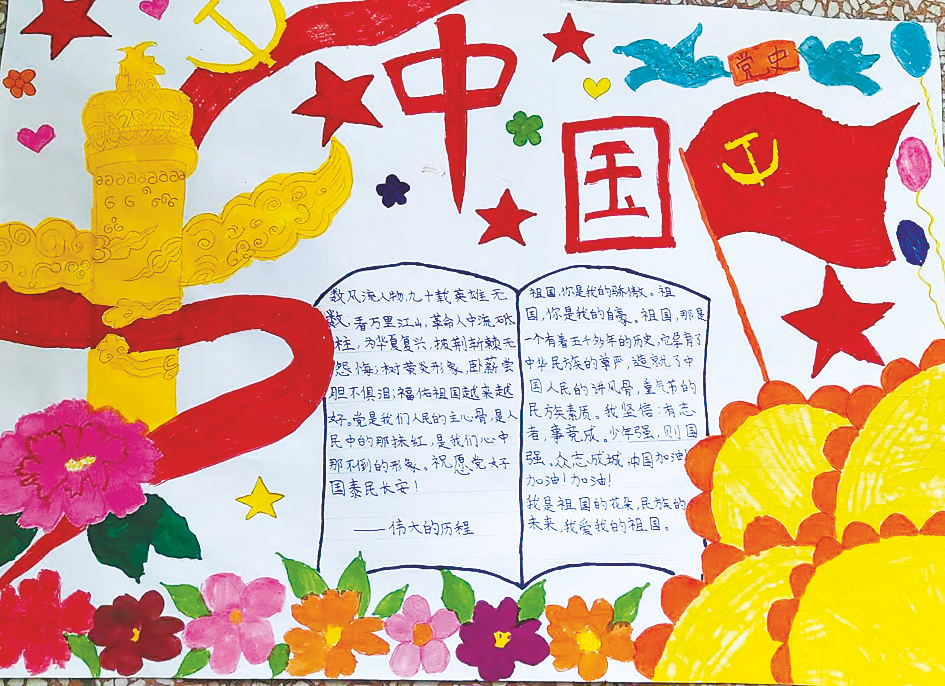 中
国
党史
数风流人物，九十载英雄无
数，看万里江山，革命人中流砥
柱，为华夏复兴，披荆斩棘无
怨悔；树荣炎形象，卧薪尝
胆不惧泪；福佑祖国越来越
好。党是我们人民的主心骨，是人
民中的那抹红，是我们心中
那不倒的形象。祝愿党好
国泰民长安！
——伟大的历程
祖国，你是我的骄傲。祖
国，你是我的自豪。祖国，那是
一个有着五千多年的历史，它孕育了
中华民族的尊严，造就了中
国人民的讲风骨，重气节的
民族素质。我坚信：有志
者，事竟成。少年强，则国
强。众志成城，中国加油！
加油！加油！
我是祖国的花朵，民族的
未来，我爱我的祖国。